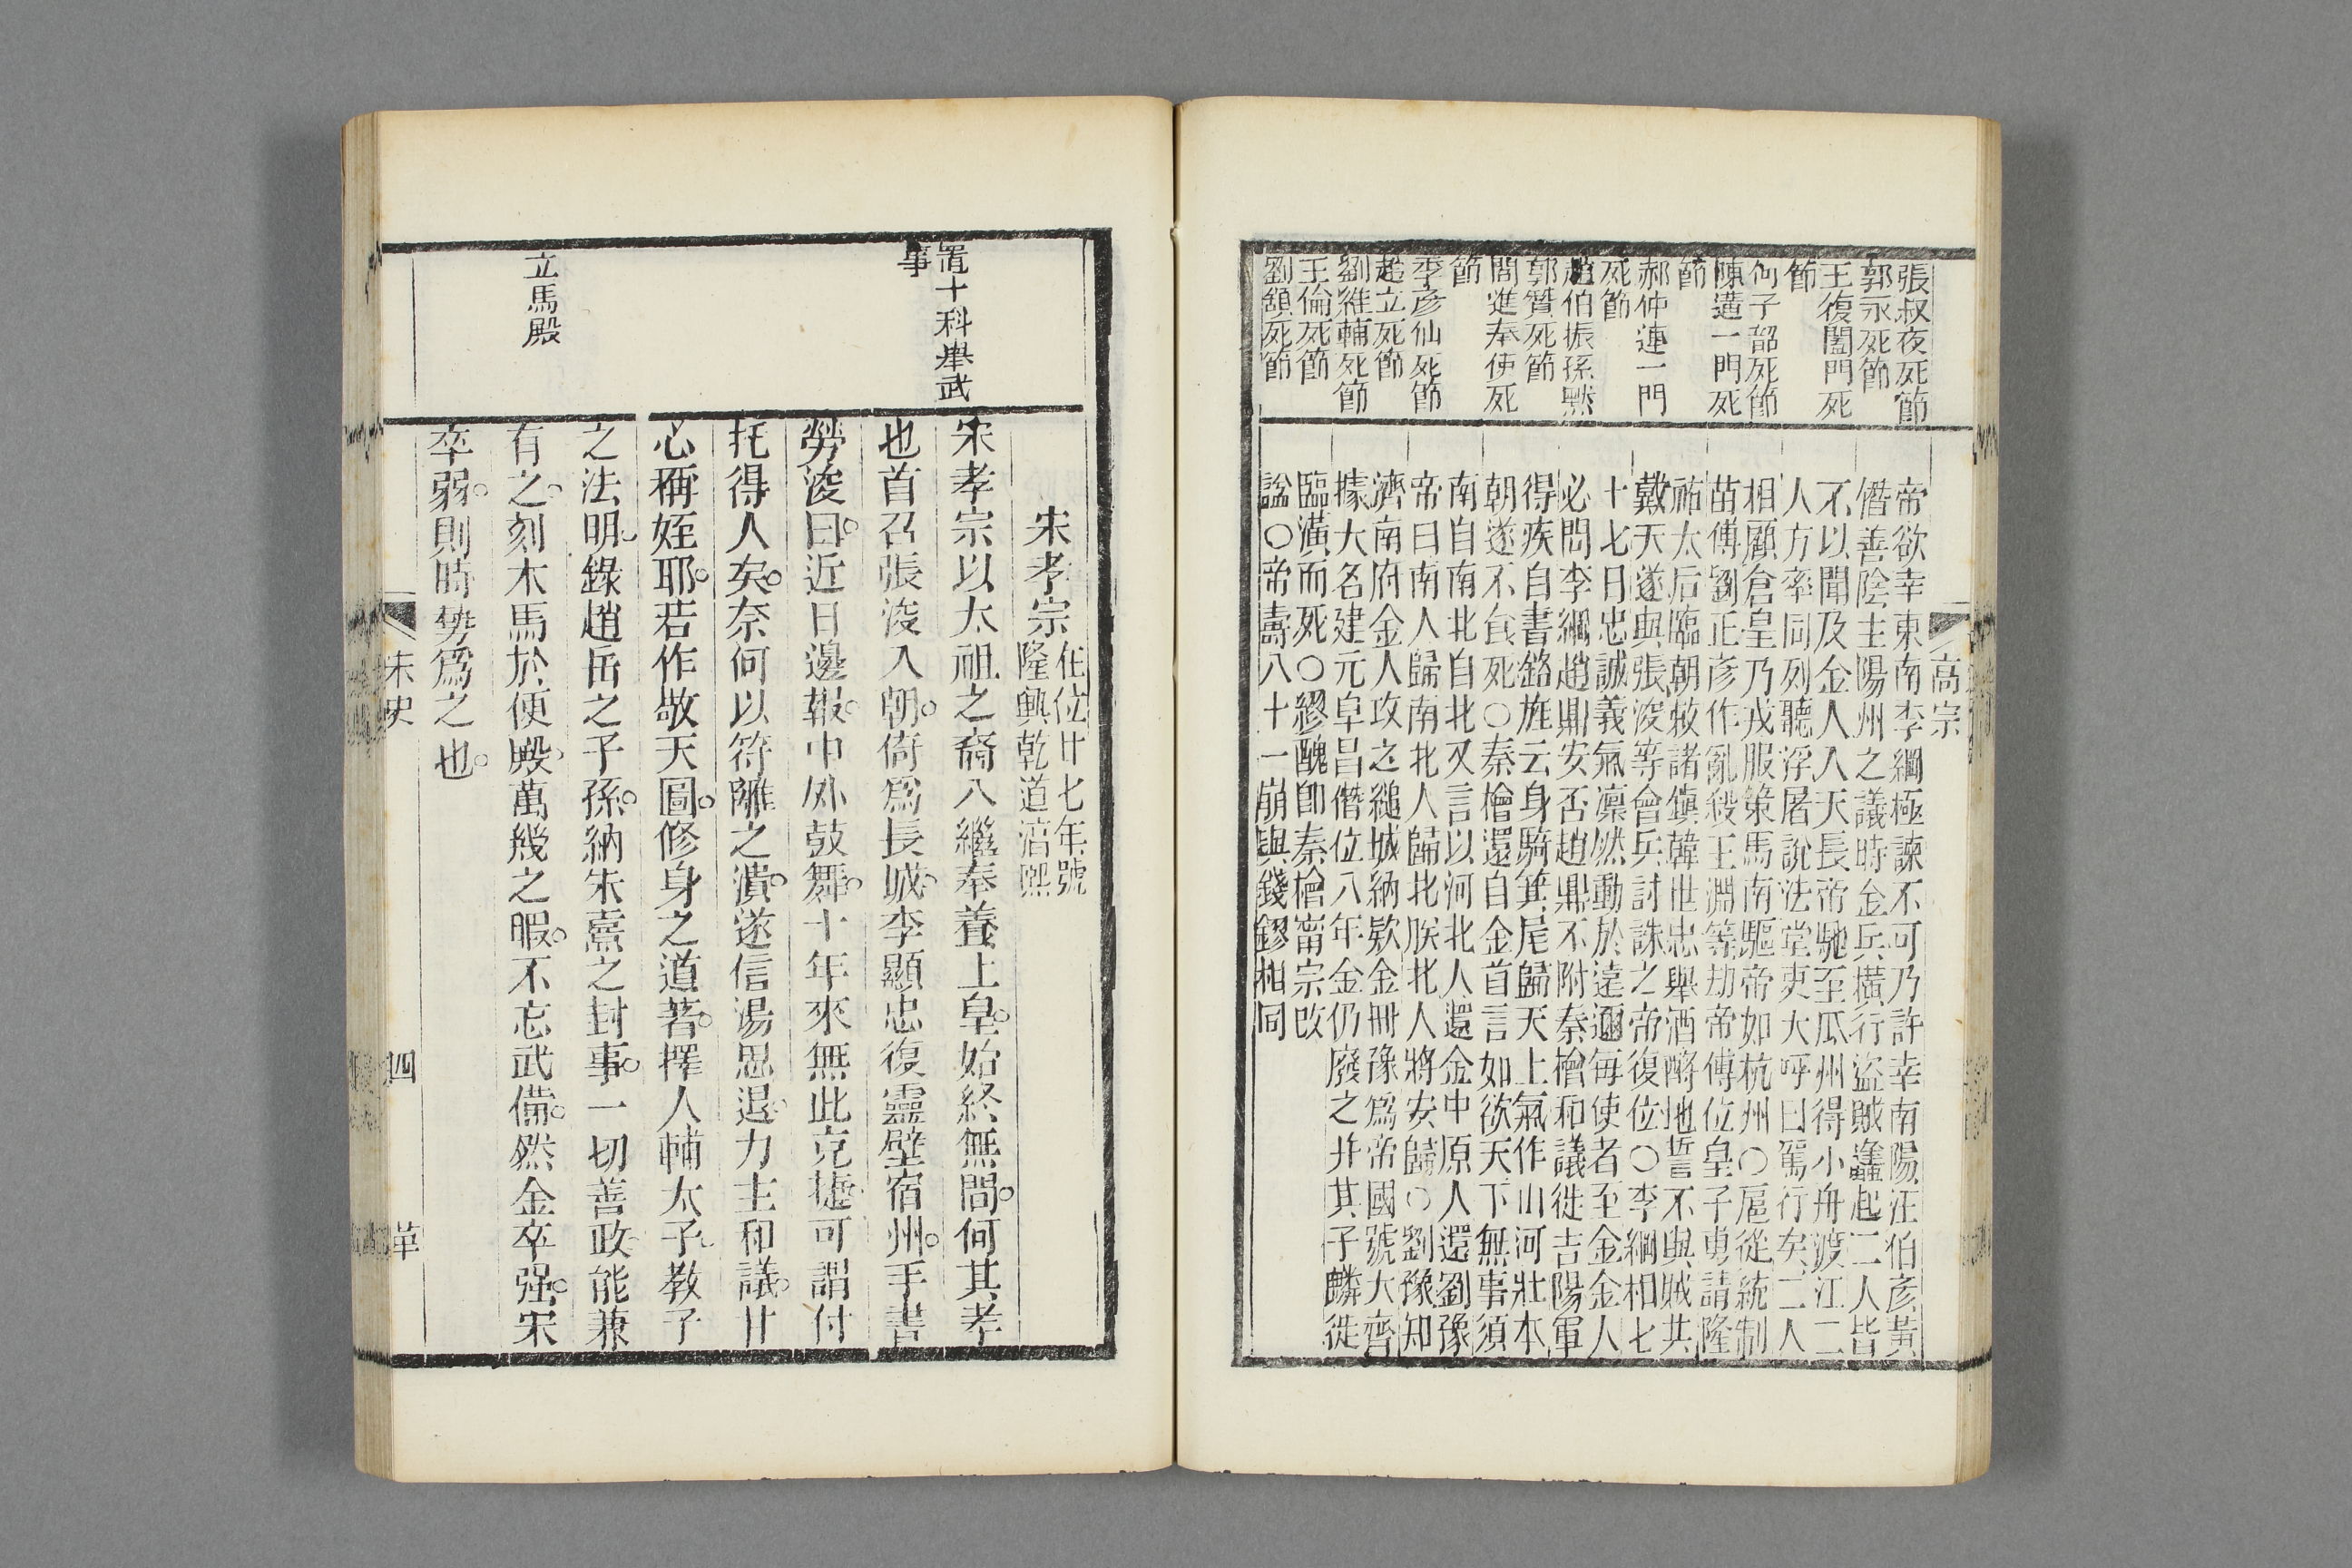 張叔夜死節
郭永死節
王復闔門死
節
何子韶死節
陳遘一門死
節
郝仲連一門
死節
趙伯振孫㷊
郭贊死節
閻進奉使死
節
李彥仙死節
趙立死節
劉維輔死節
王倫死節
劉頟死節
高宗
帝欲幸東南李綱極諫不可乃許幸南陽汪伯彥黃
僭善陰主陽州之議時金兵橫行盜賊蠭起二人皆
不以聞及金人入天長帝馳至瓜州得小舟渡江二
人方率同列聽浮屠說法堂吏大呼曰駕行矣二人
相顧倉皇乃戎服策馬南驅帝如杭州○扈從統制
苗傅劉正彥作亂殺王淵等劫帝傅位皇子旉請隆
祐太后臨朝赦諸鎮韓世忠舉酒酹地誓不與賊共
戴天遂與張浚等會兵討誅之帝復位○李綱相七
十七日忠誠義氣凛然動於遠邇每使者至金金人
必問李綱趙鼎安否趙鼎不附秦檜和議徙吉陽軍
得疾自書銘旌云身騎箕尾歸天上氣作山河壯本
朝遂不食死○秦檜還自金首言如欲天下無事須
南自南北自北又言以河北人還金中原人還劉豫
帝曰南人歸南北人歸北朕北人將安歸○劉豫知
濟南府金人攻之縋城納欵金冊豫爲帝國號大齊
據大名建元阜昌僭位八年金仍廢之并其子麟徙
臨潢而死○繆醜卽秦檜甯宗改
諡○帝壽八十一崩與錢鏐相同
置十科舉武
事
立馬殿
宋孝宗在位廿七年號
隆興乾道湻熙
宋孝宗以太祖之裔入繼奉養上皇始終無間何其孝
也首召張浚入朝倚爲長城李顯忠復靈壁宿州手書
勞浚曰近日邊報中外鼓舞十年來無此克捷可謂付
托得人矣奈何以符離之潰遂信湯思退力主和議廿
心稱姪耶若作敬天圖修身之道著擇人輔太子教子
之法明錄趙岳之子孫納朱熹之封事一切善政能兼
有之刻木馬於便殿萬幾之暇不忘武備然金卒强宋
卒弱則時勢爲之也
宋史
四